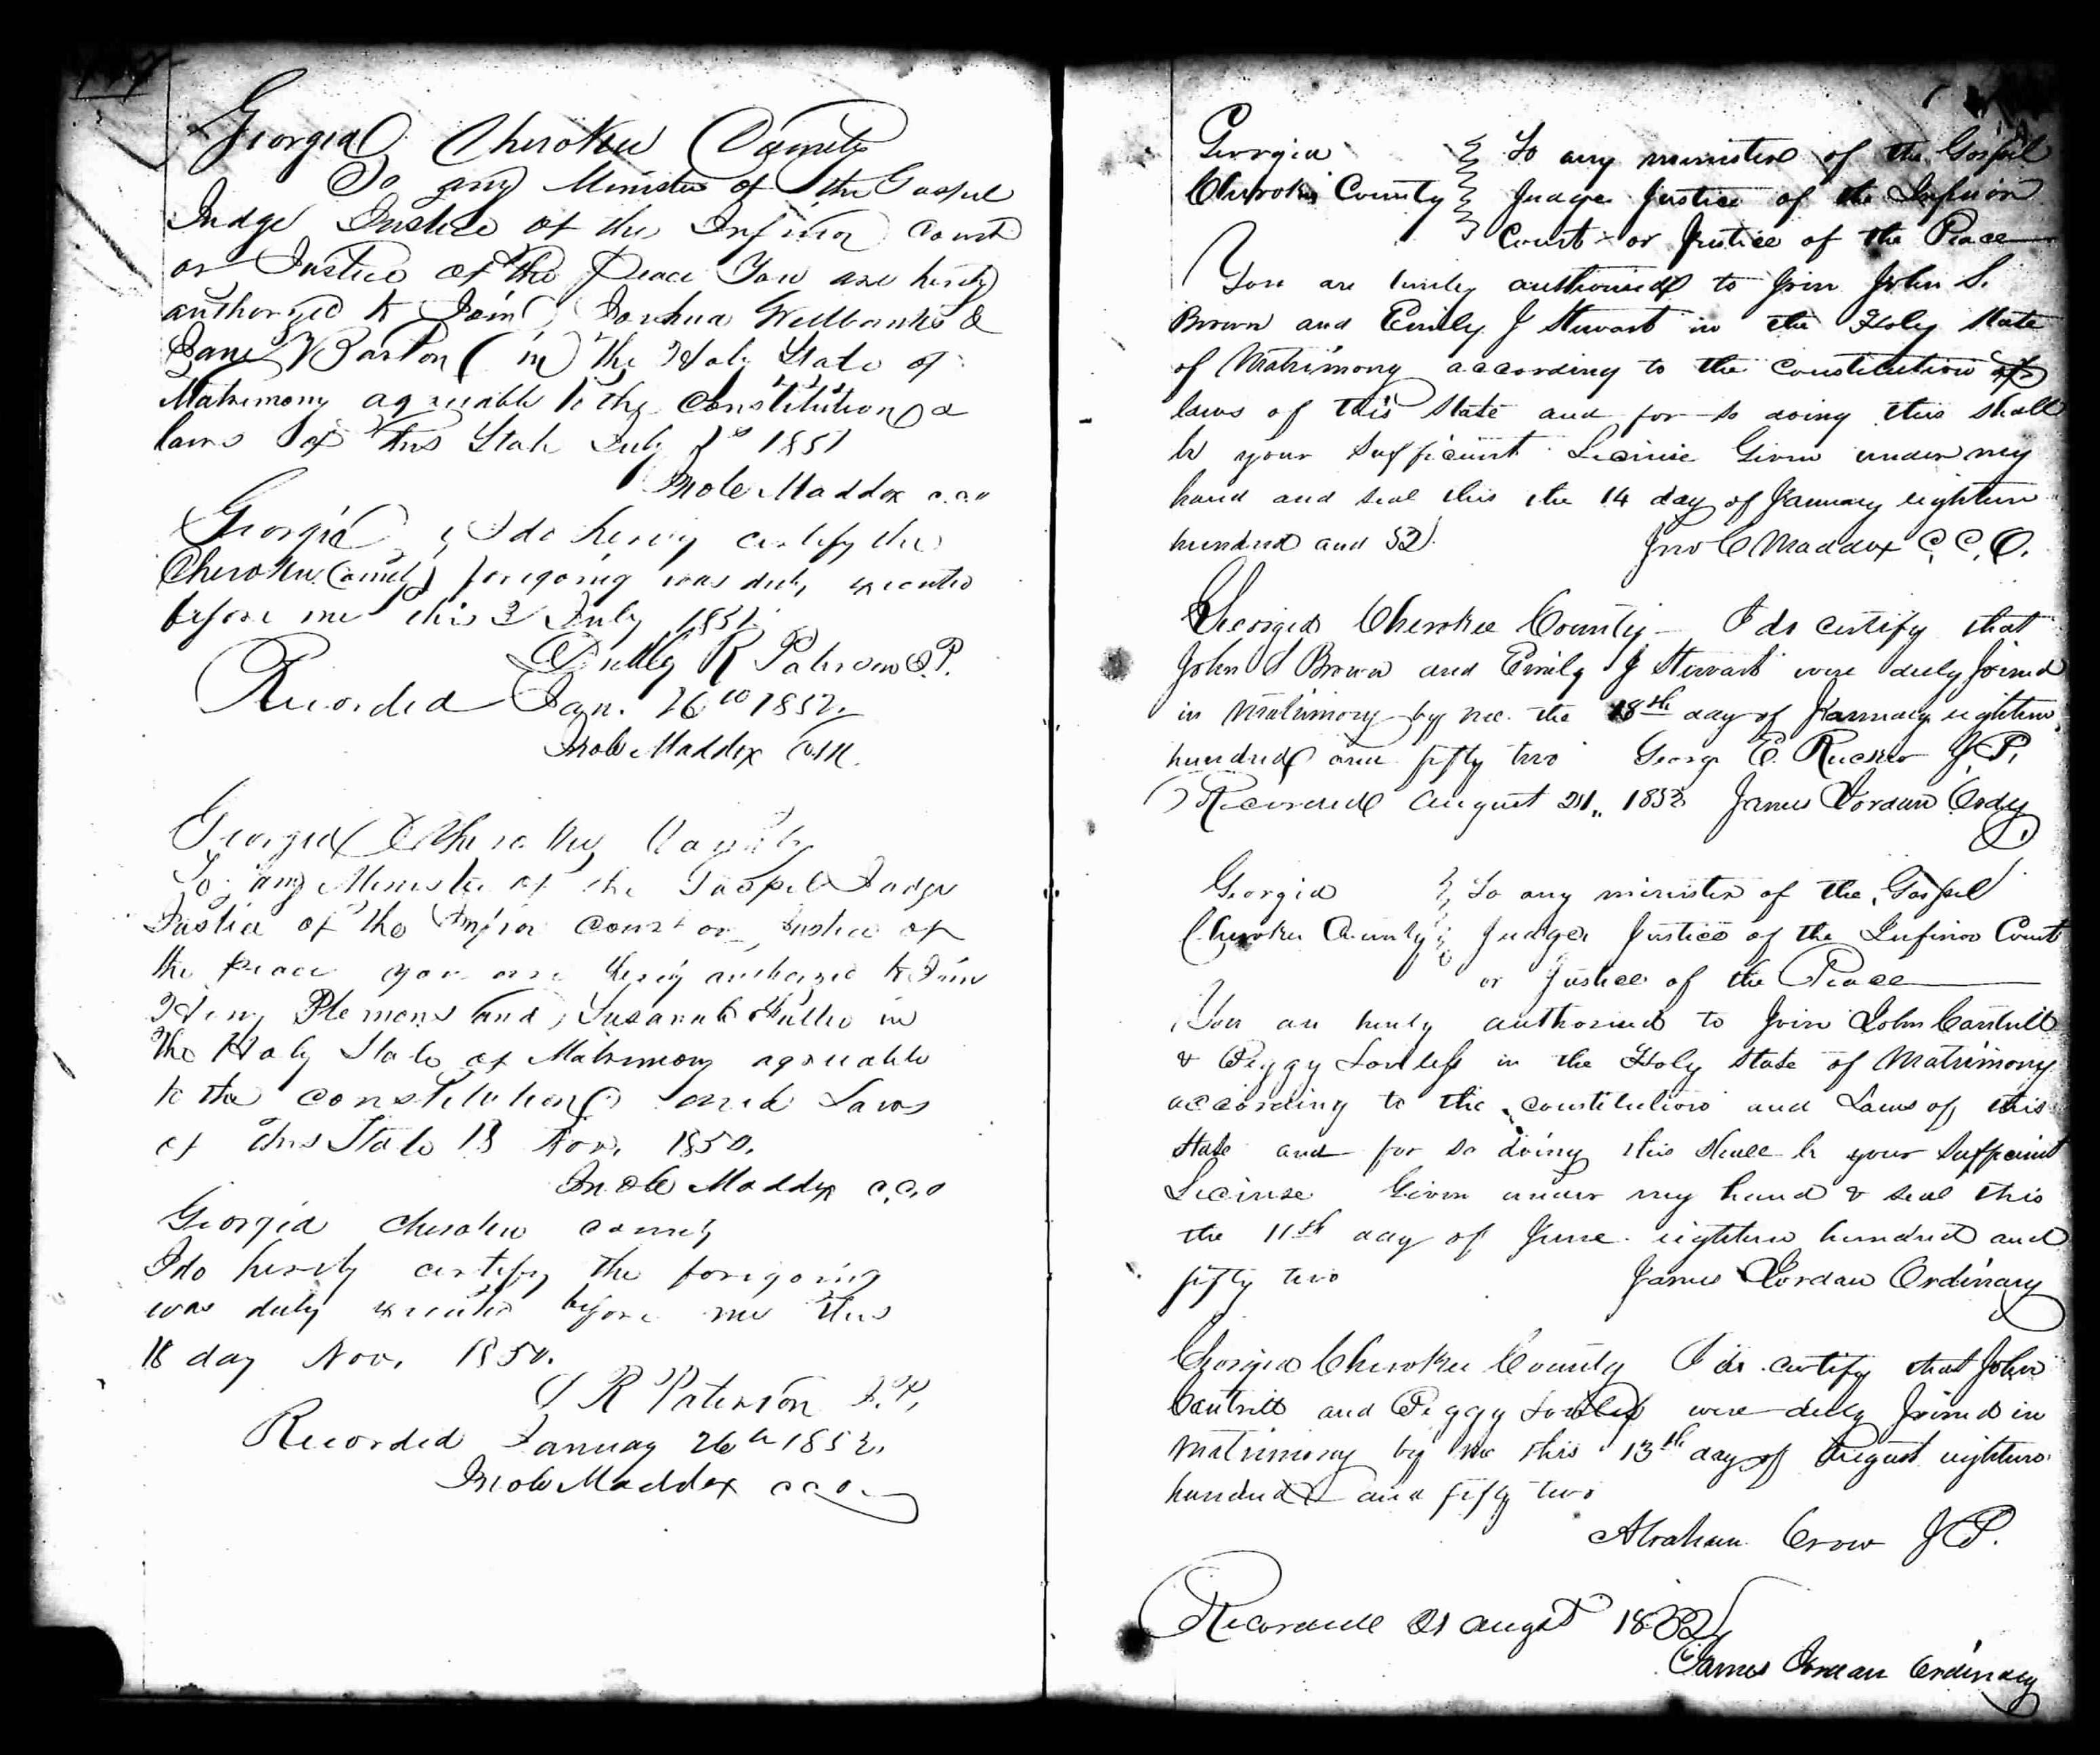 Georgia Cherokee County
To any Minister of the Gospel
Judge Justice of the Inferior Court
or Justice of the Peace You are hereby
authorized to Join Joshua Wellbanks &
Jane Barton in the Holy State of
Matrimony agreeable to the Constitution &
laws of this State July 1851
Jno C Maddox c.c.o
Georgia I do hereby certify the
Cherokee County foregoing was duly executed
before me this 3 July 1851
R Paterson J.P.
Recorded Jan. 26th 1852
Jno C Maddox
Georgia Cherokee County
To any Minister of the Gospel Judge
Justice of the Inferior Court or Justice of
the Peace you are hereby authorized to Join
Henry Plemons and Susanah in
the Holy State of Matrimony agreeable
to the constitution and Laws
of this State 13 Nov. 1850.
Jno C Maddox c.c.o
Georgia Cherokee County
I do hereby certify the foregoing
was duly executed before me this
18 day Nov. 1850.
R Paterson J.P.
Recorded January 26th 1852.
Jno C Maddox c c o
Georgia To any minister of the Gospel
Cherokee County Judge Justice of the Inferior
Court or Justice of the Peace
You are hereby authorised to Join John S.
Brown and Emily J Stewart in the Holy State
of Matrimony according to the constitution
laws of this State and for so doing this shall
be your sufficient Licinse Given under my
hand and seal this the 14 day of January eighteen
hundred and 52 Jno C Maddox C.C.O.
Georgia Cherokee County I do certify that
John S Brown and Emily J Stewart were duly Joined
in Matrimony by me the 18th day of January eighteen
hundred and fifty two George E. Rucker J.P.
Recorded August 21, 1852 James Jordan Ordy
Georgia To any minister of the Gospel
Cherokee County Judge Justice of the Inferior Court
or Justice of the Peace
You are hereby authorised to Join John Cantrill
& Peggy Lawless in the Holy State of Matrimony
according to the constitution and Laws of this
State and for so doing this shall be your sufficient
Licinse Given under my hand & seal this
the 11th day of June eighteen hundred and
fifty two James Jordan Ordinary
Georgia Cherokee County I do certify that John
Cantrill and Peggy were duly Joined in
Matrimony by me this 13th day of August eighteen
hundred and fifty two
Abraham Crow J P.
Recorded 21 August 1852
James Jordan Ordinary